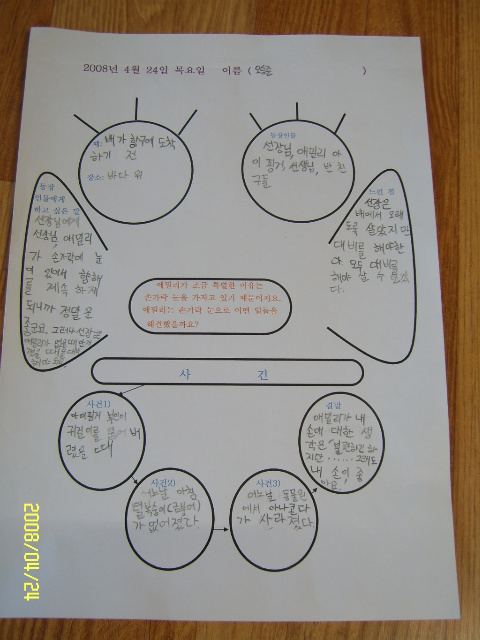 2008년 4월 24일 목요일 이름 ( )
때: 배가 항구에 도착
하기 전
장소: 바다 위
등장인물
선장님, 애밀리 아
이핑거, 선생님, 반 친
구들
등장
인물에게
하고 싶은 말
선장님에게
선장님, 애밀리
가 손가락에 눈
이 있어서 항해
계속 하게
되니까 정말 운
좋군요. 그러나 선장님
느낀 점
선장은
배에서 오래
도록 살았지만
대비를 해야한
다. 모두 대비를
해야 살 수 있겠
다.
애밀리가 조금 특별한 이유는
손가락 눈을 가지고 있기 때문이지요.
애밀리는 손가락 눈으로 어떤 일들을
해결했을까요?
사 건
사건1)
아이핑거 부인이
귀걸이를 잃어 버
렸을 때
사건2)
어느날 아침
털복숭이(금붕어)
가 없어졌다.
사건3)
어느날 동물원
에서 아나콘다
가 사라졌다
결말
애밀리가 내
손에 대한 생
각은 불편하긴 하
지만 ...... 그래도
내 손이 좋
아요.
2008/04/24